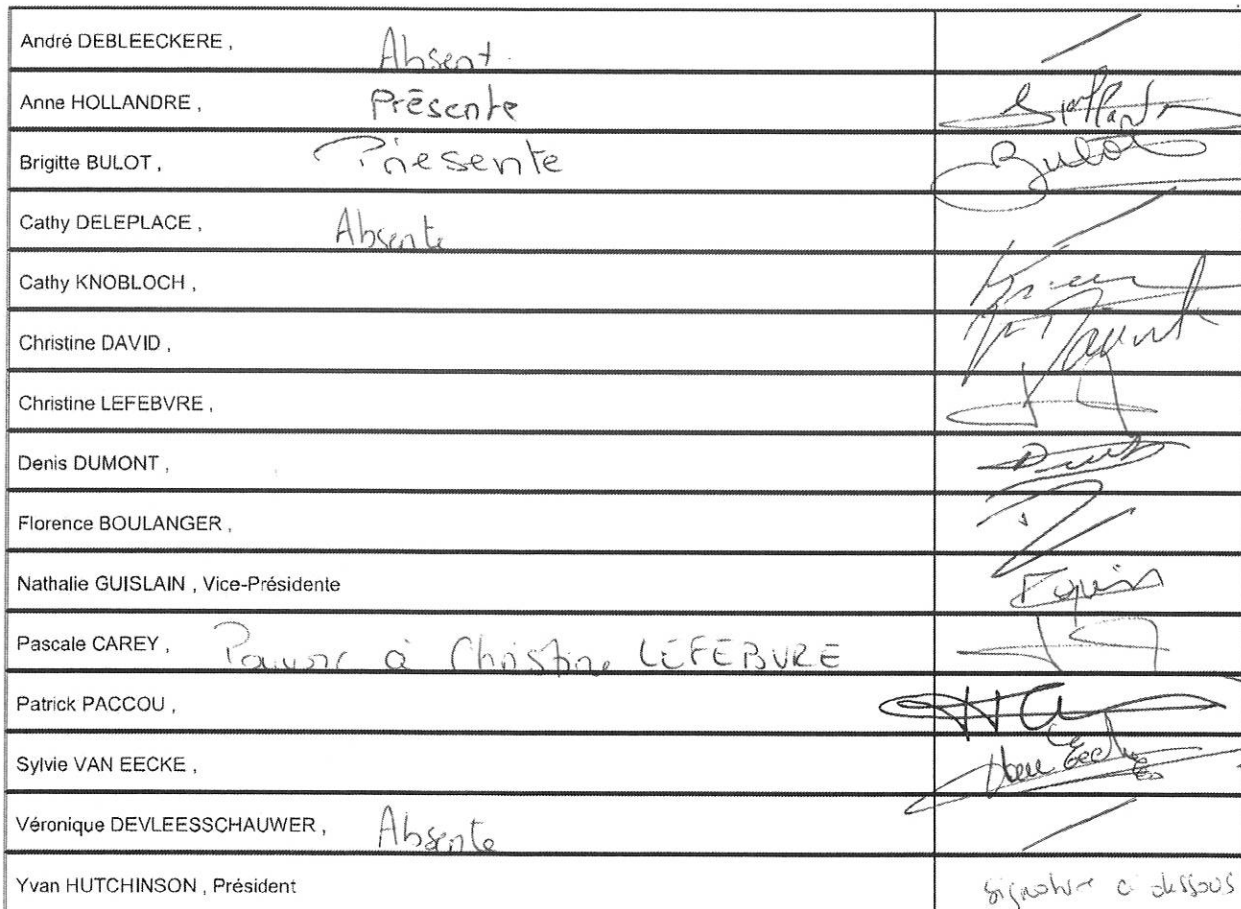 André DEBLEECKERE , Absent.
Anne HOLLANDRE , Présente
Brigitte BULOT , Présente Bulot
Cathy DELEPLACE , Absente
Cathy KNOBLOCH ,
Christine DAVID ,
Christine LEFEBVRE ,
Denis DUMONT ,
Florence BOULANGER ,
Nathalie GUISLAIN , Vice-Présidente
Pascale CAREY , Pouvoir à Christine LEFEBVRE
Patrick PACCOU ,
Sylvie VAN EECKE ,
Véronique DEVLEESSCHAUWER , Absente
Yvan HUTCHINSON , Président signature ci dessous